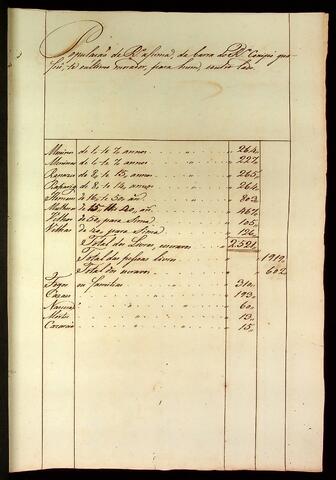 População do R.º asima, da barra do R.º
the ultimo morador, para hum, e outro lado.
Meninos de 1, the 7, annos 264,
Meninas de 1, the 7, annos 227,
Rapazes de 8, the 15, annos 265,
Raparig.s de 8, the 14, annos 264,
Homens de 16, the 50, añ. 803
Mulheres de 15, the 40, añ. 467
Velhos de 50, para sima 105,
Velhas de 40, para sima 126,
Total dos Livres, e escravos 2.521,
Total das pessoas livres 1919,
Total dos escravos 602
Fogos ou familias 310,
Cazaes 193,
Nascim.tos 60,
Mortes 13,
Cazam.tos 15,